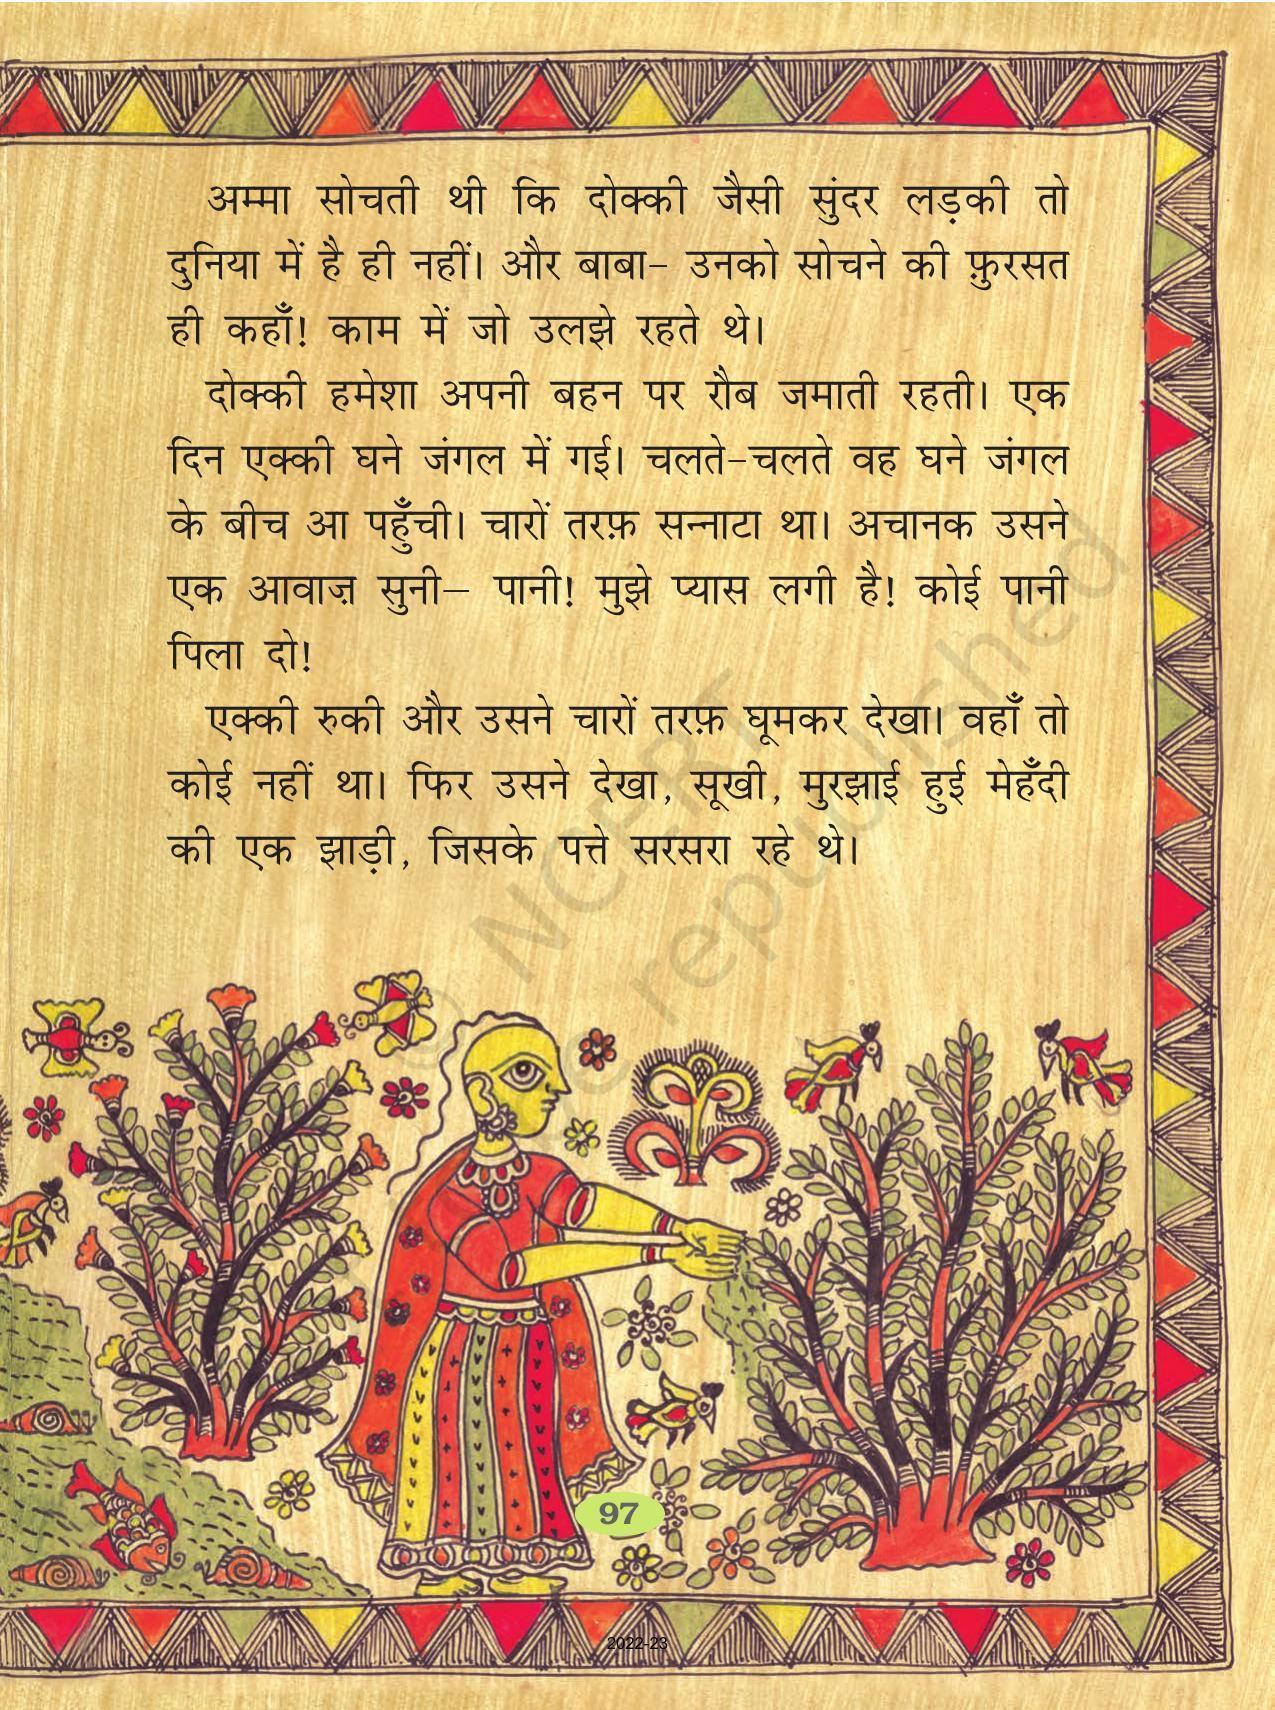 अम्मा सोचती थी कि दोक्की जैसी सुंदर लड़की तो
दुनिया में है ही नहीं। और बाबा– उनको सोचने की फ़ुरसत
ही कहाँ! काम में जो उलझे रहते थे।
दोक्की हमेशा अपनी बहन पर रौब जमाती रहती। एक
दिन एक्की घने जंगल में गई। चलते-चलते वह घने जंगल
के बीच आ पहुँची। चारों तरफ़ सन्नाटा था। अचानक उसने
एक आवाज़ सुनी– पानी! मुझे प्यास लगी है! कोई पानी
पिला दो!
एक्की रुकी और उसने चारों तरफ़ घूमकर देखा। वहाँ तो
कोई नहीं था। फिर उसने देखा, सूखी, मुरझाई हुई मेहँदी
की एक झाड़ी, जिसके पत्ते सरसरा रहे थे।
© NCERT
republished
97
2022-23